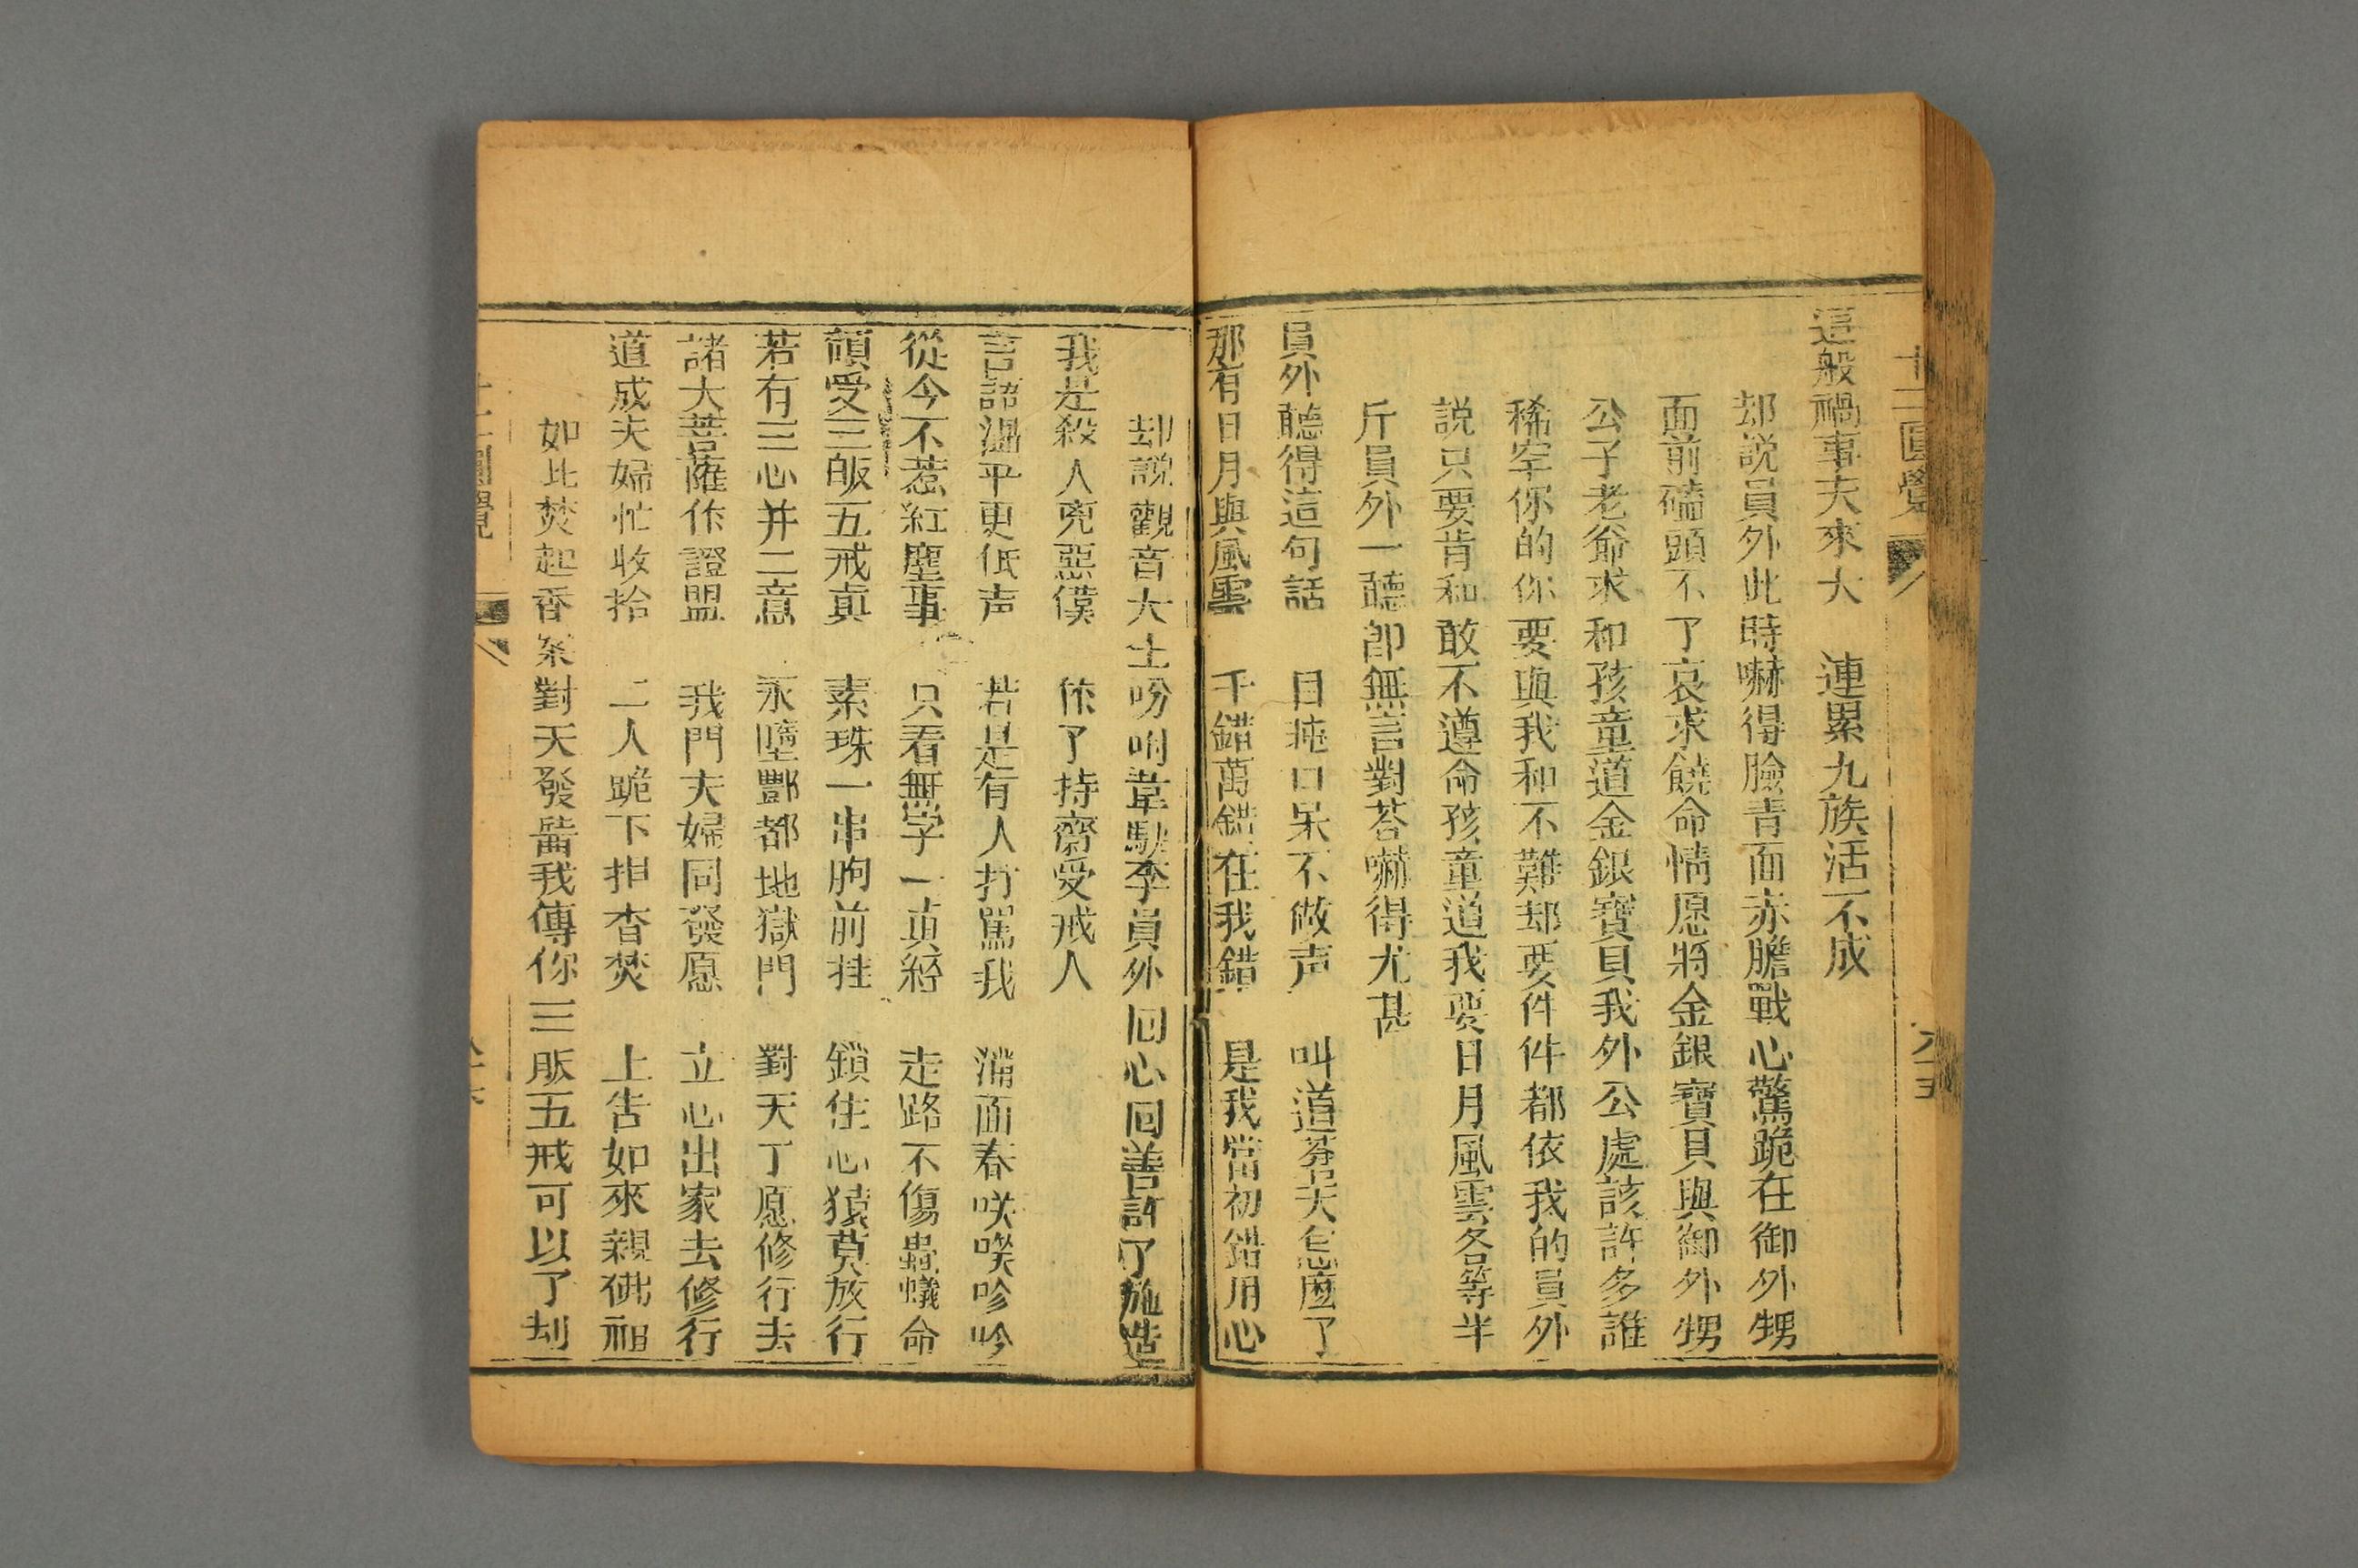 十二圓覺
這般禍事夫來大　連累九族活不成
却説員外此時嚇得臉青面赤膽戰心驚跪在御外甥
面前磕頭不了哀求饒命情愿將金銀寶貝與御外甥
公子老爺求和孩童道金銀寶貝我外公處該許多誰
稀罕你的你要與我和不難却要件件都依我的員外
説只要肯和敢不遵命孩童道我要日月風雲各等半
斤員外一聽即無言對荅嚇得尤甚
員外聽得這句話　目㨂口呆不做声　叫道蒼天怎麼了
那有日月與風雲　千錯萬錯在我錯　是我當初錯用心
却説觀音大士吩咐韋馱李員外回心回善許了施造
我是殺人兇惡僕　作了持齋受戒人
言語溫平更低声　若是有人打罵我　滿面春咲唉吟吟
從今不惹紅塵事　只看無字一真經　走路不傷蟲蟻命
頓受三皈五戒真　素珠一串胸前挂　鎖住心猿莫放行
若有三心并二意　永墮酆都地獄門　對天丁愿修行去
諸大菩薩作證盟　我門夫婦同發愿　立心出家去修行
道成夫婦忙收拾　二人跪下把香焚　上告如來親佛祖
如此焚起香案對天發誓我傳你三皈五戒可以了刦
十二圓覺